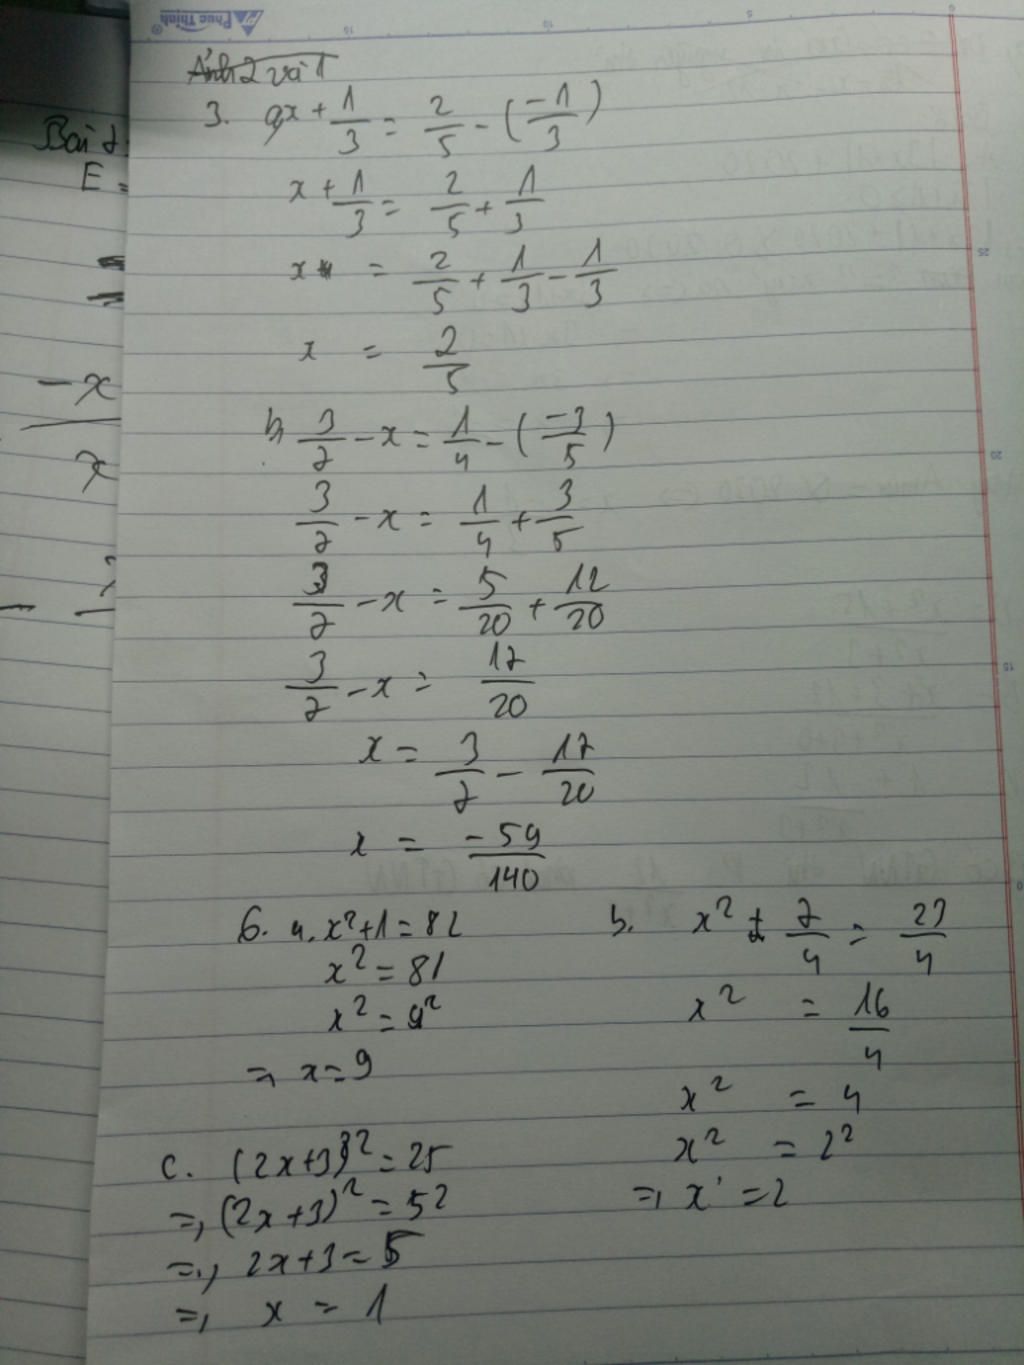 Phúc Thịnh
Ảnh 2 và 1
Bài 2
E =
3. a, x + 1/3 = 2/5 - (-1/3)
x + 1/3 = 2/5 + 1/3
x = 2/5 + 1/3 - 1/3
x = 2/5
b, 3/7 - x = 1/4 - (-3/5)
3/7 - x = 1/4 + 3/5
3/7 - x = 5/20 + 12/20
3/7 - x = 17/20
x = 3/7 - 17/20
x = -59/140
6. a. x² + 1 = 82
x² = 81
x² = 9²
=> x = 9
b. x² + 7/4 = 23/4
x² = 16/4
x² = 4
x² = 2²
=> x = 2
c. (2x+3)² = 25
=> (2x+3)² = 5²
=> 2x+3 = 5
=> x = 1
-x
x